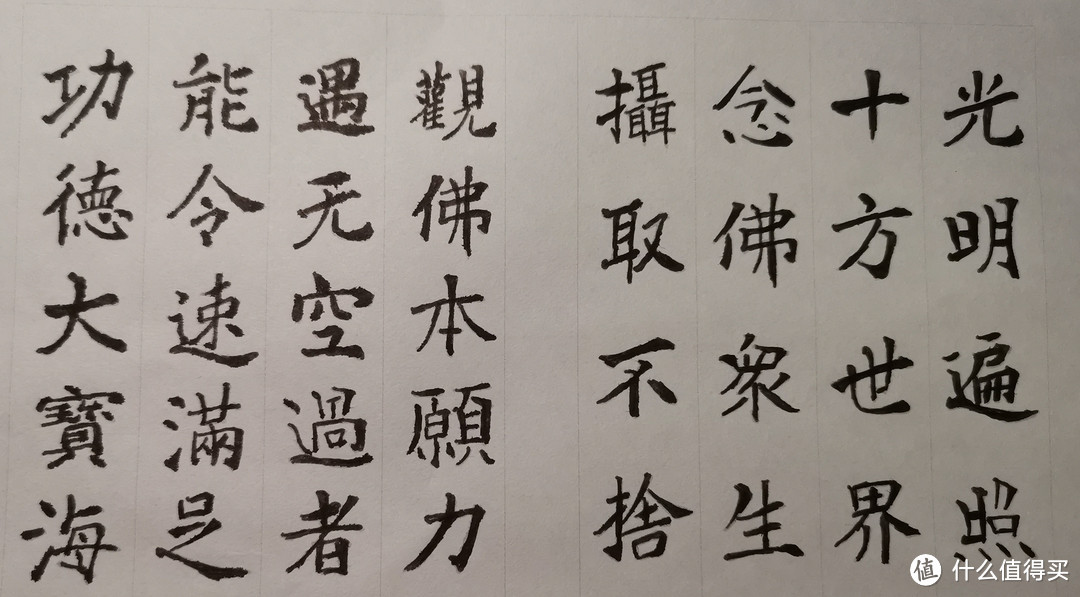 光明遍照
十方世界
念佛衆生
攝取不捨
觀佛本願力
遇无空過者
能令速滿足
功德大寶海
值 什么值得买